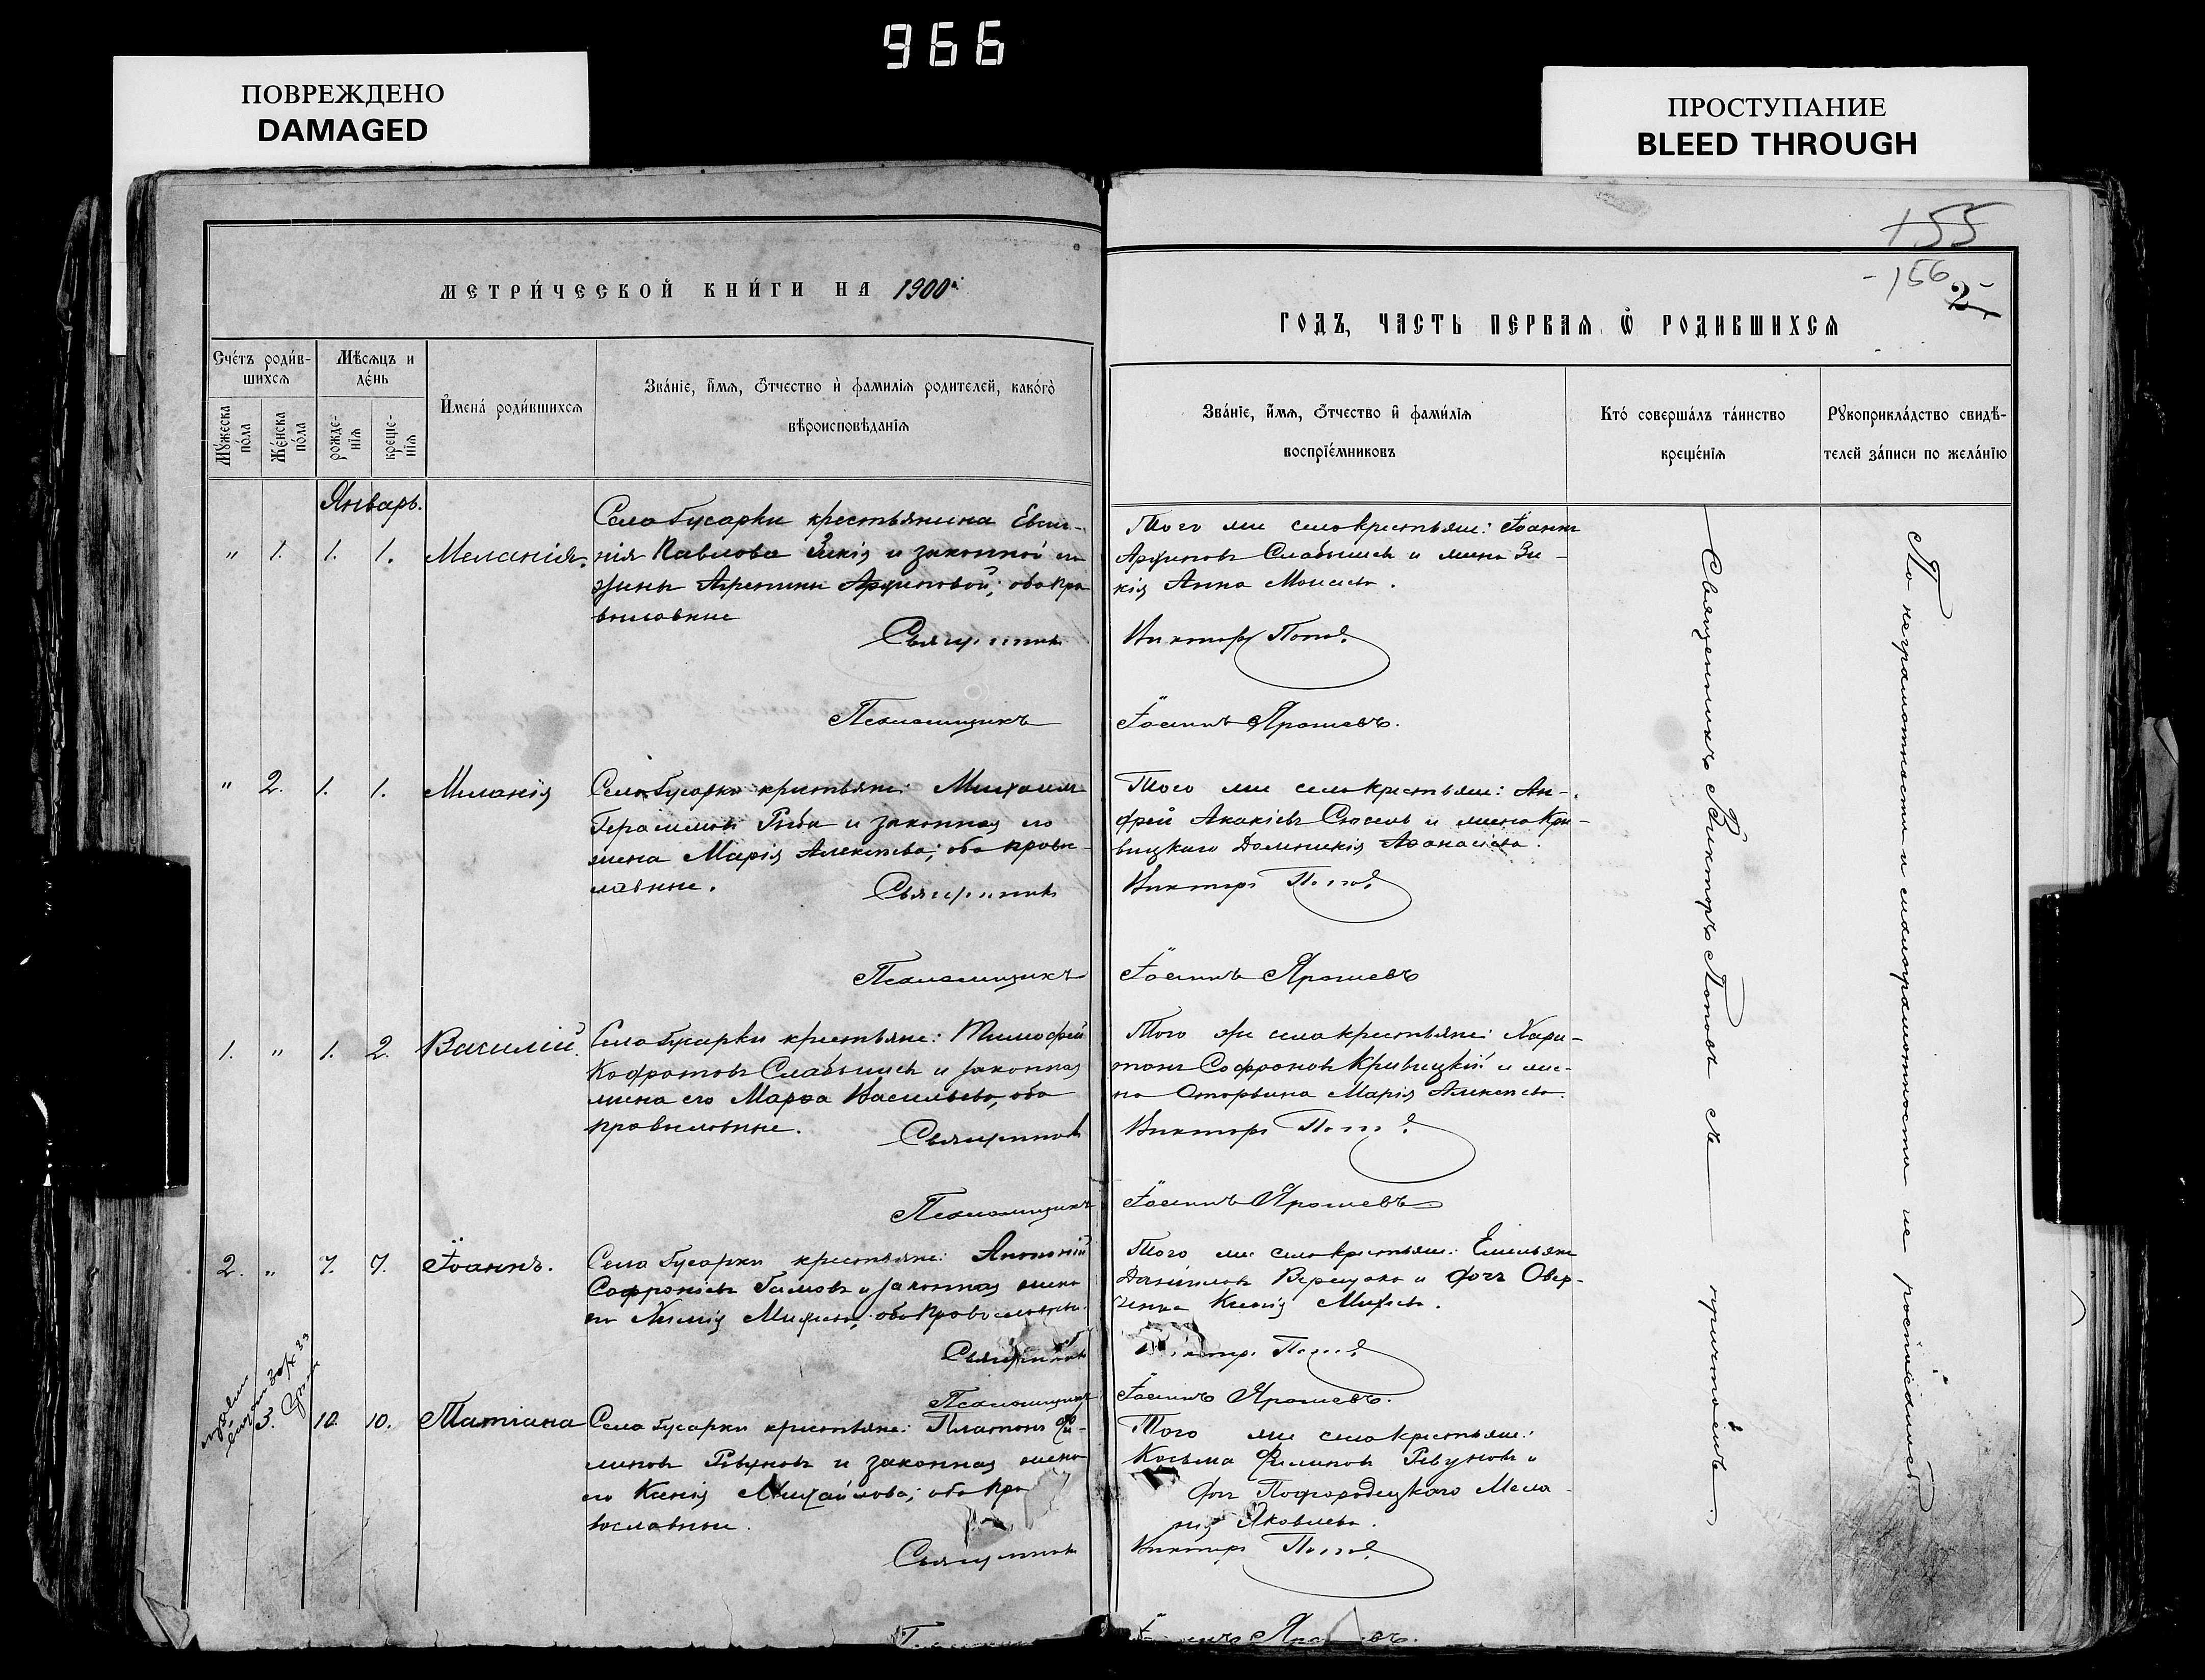 966
ПОВРЕЖДЕНО
DAMAGED
ПРОСТУПАНИЕ
BLEED THROUGH
155
-156
2
МЕТРИ́ЧЕСКОЙ КНИ́ГИ НА 1900
ГОДЪ, ЧАСТЬ ПЕРВАЯ Ѿ РОДИВШИХСѦ
Сче́тъ роди́в-
шихсѧ
Мꙋ́жеска по́ла
Же́нска по́ла
Мѣ́сѧцъ и де́нь
рожде-
нїѧ
креще-
нїѧ
И҆мена́ роди́вшихсѧ
Зва́нїе, и҆́мѧ, Ѻ҆́тчество и҆ фами́лїѧ роди́телей, како́гѡ
вѣроисповѣ́данїѧ
Зва́нїе, и҆́мѧ, Ѻ҆́тчество и҆ фами́лїѧ
воспрїе́мниковъ
Кто́ соверша́лъ та́инство
креще́нїѧ
Рꙋкоприкла́дство свидѣ́-
телей за́писи по жела́нїю
Январь.
" 1. 1. 1. Меланія.
Села Гусарки крестьянина Евге-
нія Павлова Зикія и законной его
жены Агрепины Архиповой; оба пра
вославные
Священникъ
Псаломщикъ
Того же села крестьяне: Іоаннъ
Архиповъ Слабышевъ и жена Зи-
кія Анна Моисеева.
Викторъ Поповъ
Іоаннъ Ярошевъ.
" 2. 1. 1. Меланія
Села Гусарки крестьяне: Михаилъ
Герасимовъ Рыба и законная его
жена Марія Алексѣева; оба право-
славные.
Священникъ
Псаломщикъ
Того же села крестьяне: Ан-
дрей Акакіевъ и жена Кри-
вицкаго Доминикія Аѳанасіева.
Викторъ Поповъ
Іоаннъ Ярошевъ
1. " 1. 2. Василій.
Села Гусарки крестьяне: Тимофей
Слабышевъ и законная
жена его Марѳа Васильева, оба
православные.
Священникъ
Псаломщикъ
Того же села крестьяне: Хари-
тонъ Софроновъ Кривицкій и же-
на Марія Алексѣева.
Викторъ Поповъ
Іоаннъ Ярошевъ
2. " 7. 7. Іоаннъ.
Села Гусарки крестьяне: Антоній
Софроніевъ и законная жена
его Михеева, оба православные.
Священникъ
Псаломщикъ
Того же села крестьяне: Емельянъ
Даніиловъ Верещака и дочь Овер-
ченка Ксенія Михеева.
Викторъ Поповъ
Іоаннъ Ярошевъ.
3. 10. 10. Татіана
Села Гусарки крестьяне: Платонъ Фи-
липовъ Ревуновъ и законная жена
его Ксенія Михайлова; оба пра
вославные.
Священникъ
Того же села крестьяне:
Косьма Филиповъ Ревуновъ и
дочь Подгородецкаго Мела-
нія Яковлева.
Викторъ Поповъ
Іоаннъ Ярошевъ.
Священникъ Викторъ Поповъ съ причтомъ.
По неграмотности и малограмотности не росписались.